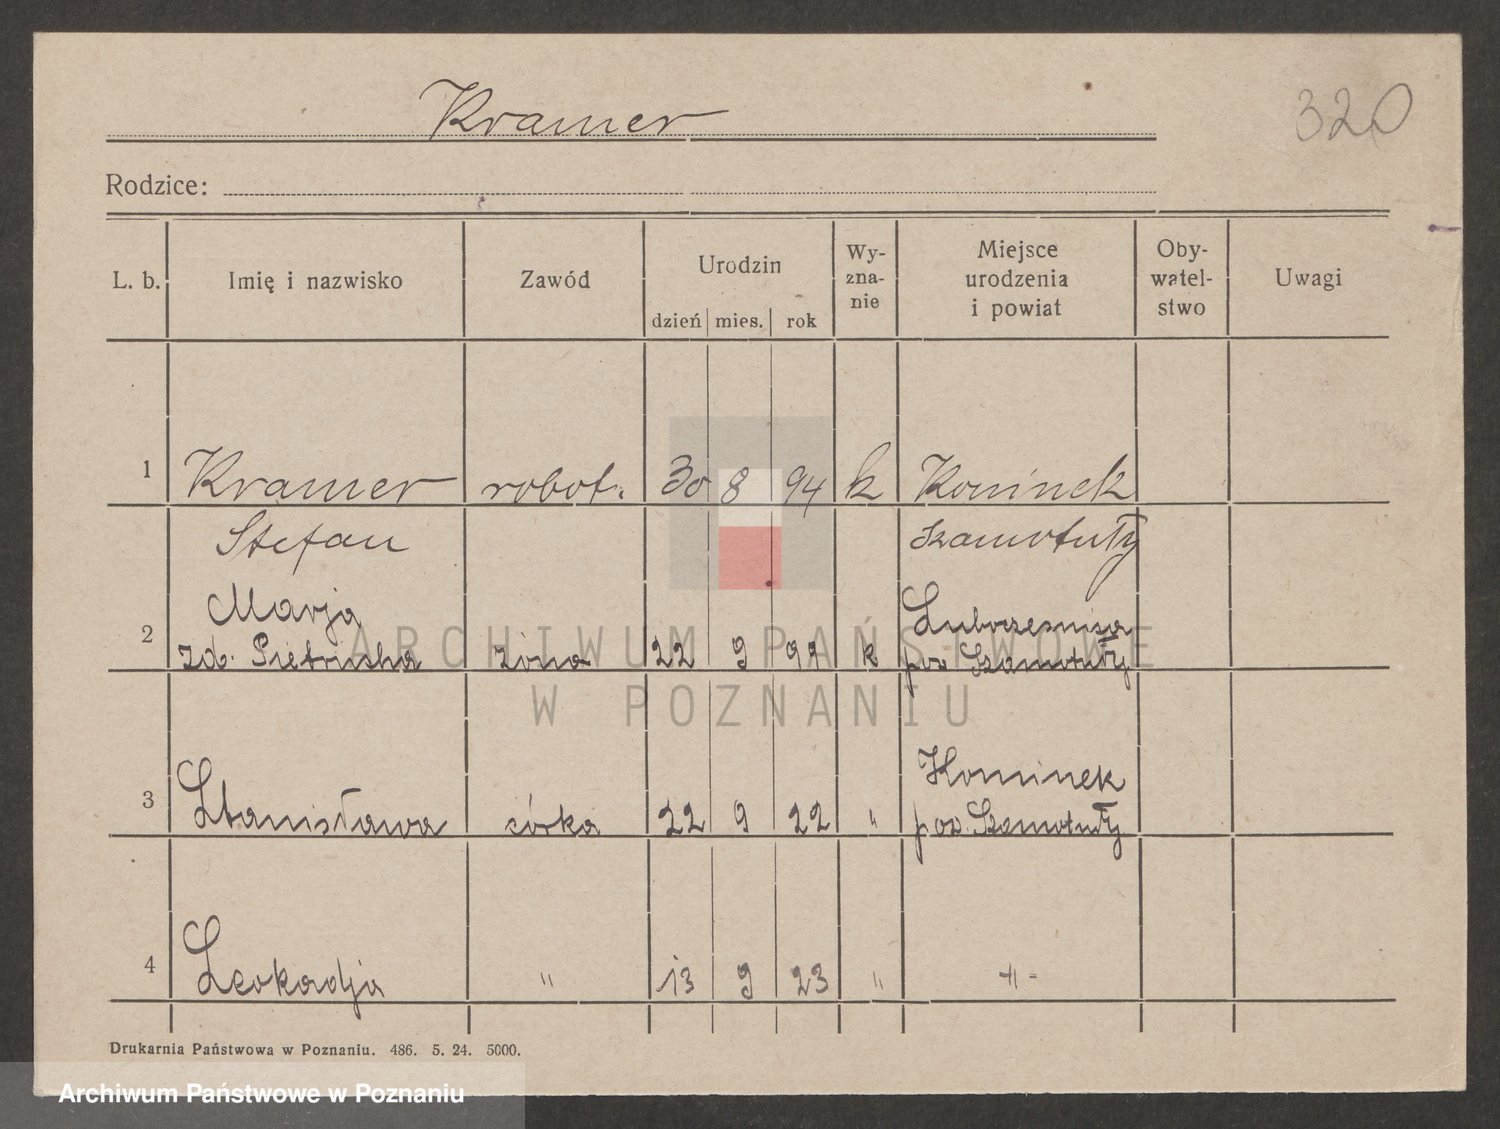 Kramer
320
Rodzice:
L. b. Imię i nazwisko Zawód Urodzin dzień mies. rok Wy-zna-nie Miejsce urodzenia i powiat Oby-watel-stwo Uwagi
1 Kramer robot. 30 8 94 k Koninek
Stefan Szamotuły
Marja
2 zd. Pietruska żona 22 9 99 k pow Szamotuły
Koninek
3 Stanisława córka 22 9 22 " pow. Szamotuły
4 Leokadja " 13 9 23 " -"-
Drukarnia Państwowa w Poznaniu. 486. 5. 24. 5000.
ARCHIWUM PAŃSTWOWE
W POZNANIU
Archiwum Państwowe w Poznaniu